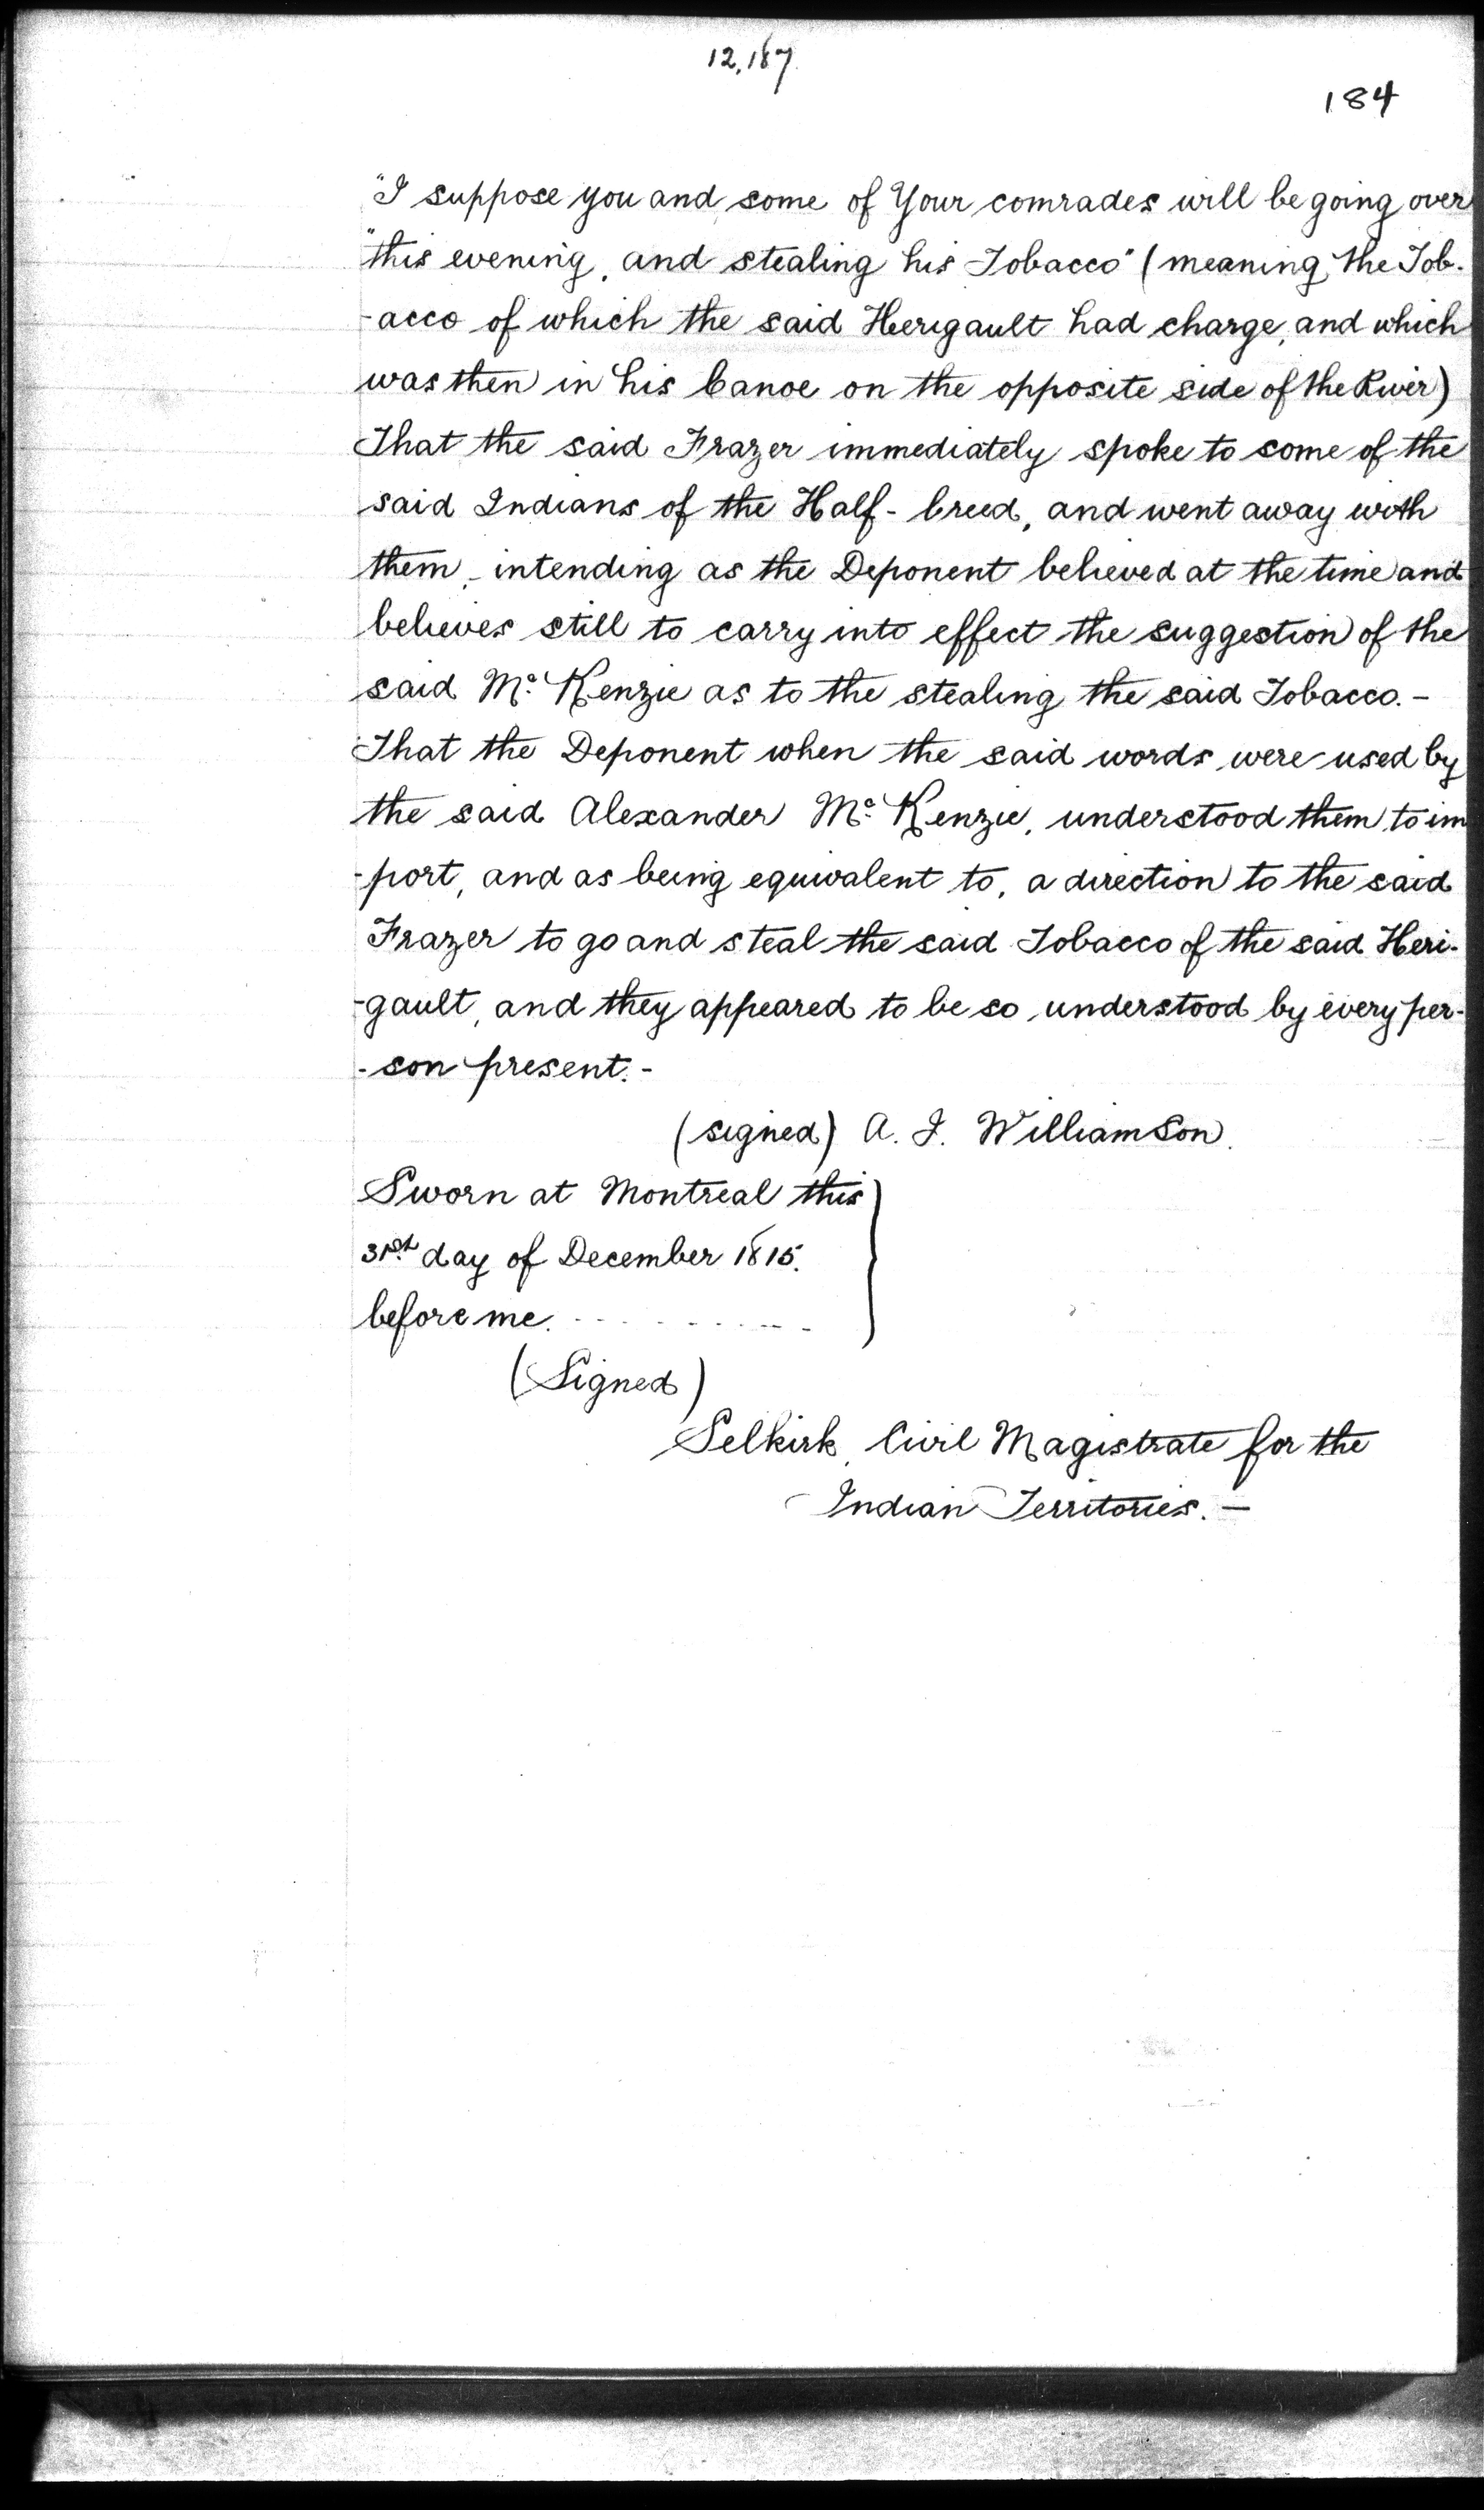 12,187
184
"I suppose you and some of Your comrades will be going over
"this evening, and stealing his Tobacco" (meaning the Tob-
-acco of which the said Herigault had charge, and which
was then in his Canoe on the opposite side of the River)
That the said Frazer immediately spoke to some of the
said Indians of the Half-breed, and went away with
them, - intending as the Deponent believed at the time and
believes still to carry into effect the suggestion of the
said Mc. Kenzie as to the stealing the said Tobacco. -
That the Deponent when the said words were used by
the said Alexander Mc. Kenzie, understood them to im
-port, and as being equivalent to, a direction to the said
Frazer to go and steal the said Tobacco of the said Heri-
-gault, and they appeared to be so understood by every per-
-son present. -
(signed) A. J. Williamson.
Sworn at Montreal this
31st day of December 1815.
before me.
(Signed)
Selkirk, Civil Magistrate for the
Indian Territories. -